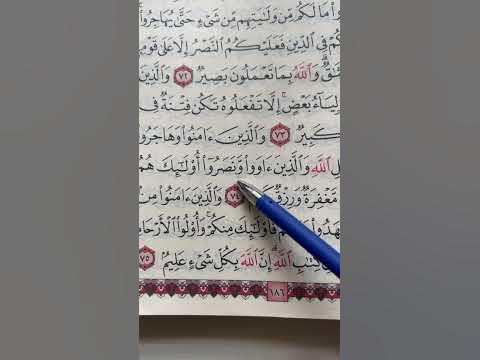 مَا لَكُم مِّن وَلَٰيَتِهِم مِّن شَىْءٍ حَتَّىٰ يُهَاجِرُوا۟
فِى ٱلدِّينِ فَعَلَيْكُمُ ٱلنَّصْرُ إِلَّا عَلَىٰ قَوْمٍۭ
وَٱللَّهُ بِمَا تَعْمَلُونَ بَصِيرٌ ٧٢ وَٱلَّذِينَ
بَعْضٍ ۚ إِلَّا تَفْعَلُوهُ تَكُن فِتْنَةٌ فِى
كَبِيرٌ ٧٣ وَٱلَّذِينَ ءَامَنُوا۟ وَهَاجَرُوا۟
ٱللَّهِ وَٱلَّذِينَ ءَاوَوا۟ وَّنَصَرُوٓا۟ أُو۟لَٰٓئِكَ هُمُ
مَّغْفِرَةٌ وَرِزْقٌ ٧٤ وَٱلَّذِينَ ءَامَنُوا۟ مِنۢ
فَأُو۟لَٰٓئِكَ مِنكُمْ ۚ وَأُو۟لُوا۟ ٱلْأَرْحَامِ
كِتَٰبِ ٱللَّهِ ۗ إِنَّ ٱللَّهَ بِكُلِّ شَىْءٍ عَلِيمٌۢ ٧٥
١٨٦